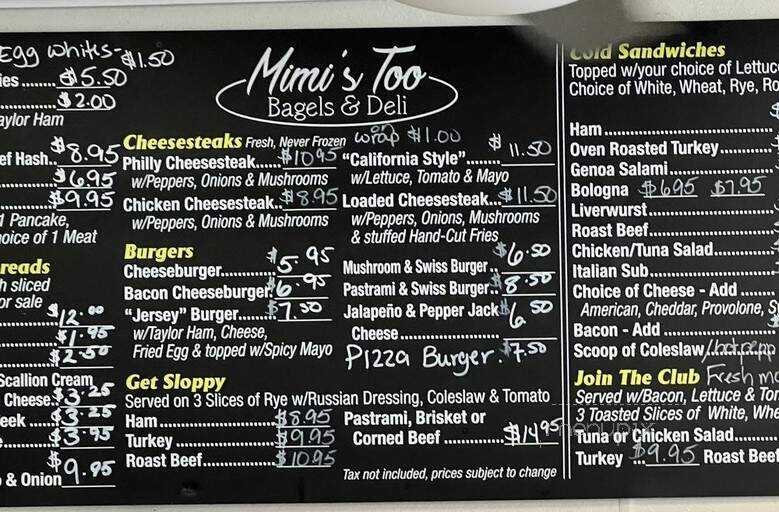 Egg Whites - $1.50
ies....... $5.50
........ $2.00
aylor Ham
ef Hash.. $8.95
....... $6.95
....... $9.95
1 Pancake,
oice of 1 Meat
reads
h sliced
or sale
....... $12.00
....... $1.95
....... $2.50
Scallion Cream
Cheese. $3.25
eek .... $3.25
e....... $3.95
& Onion $9.95
Mimi's Too
Bagels & Deli
Cheesesteaks Fresh, Never Frozen Wrap $1.00
Philly Cheesesteak.... $10.95
w/Peppers, Onions & Mushrooms
Chicken Cheesesteak.. $8.95
w/Peppers, Onions & Mushrooms
"California Style"....... $11.50
w/Lettuce, Tomato & Mayo
Loaded Cheesesteak.. $11.50
w/Peppers, Onions, Mushrooms
& stuffed Hand-Cut Fries
Burgers
Cheeseburger........... $5.95
Bacon Cheeseburger $6.95
"Jersey" Burger........ $7.50
w/Taylor Ham, Cheese,
Fried Egg & topped w/Spicy Mayo
Mushroom & Swiss Burger.. $6.50
Pastrami & Swiss Burger.. $8.50
Jalapeño & Pepper Jack $6.50
Cheese....................
Pizza Burger. $7.50
Get Sloppy
Served on 3 Slices of Rye w/Russian Dressing, Coleslaw & Tomato
Ham........................ $8.95
Turkey.................... $9.95
Roast Beef.............. $10.95
Pastrami, Brisket or
Corned Beef ........... $14.95
Tax not included, prices subject to change
Cold Sandwiches
Topped w/your choice of Lettuc
Choice of White, Wheat, Rye, Ro
Ham.............................
Oven Roasted Turkey........
Genoa Salami..................
Bologna $6.95 $7.95
Liverwurst......................
Roast Beef.....................
Chicken/Tuna Salad.........
Italian Sub.....................
Choice of Cheese - Add .....
American, Cheddar, Provolone, S
Bacon - Add ..................
Scoop of Coleslaw/hot pepp
Join The Club Fresh mo
Served w/Bacon, Lettuce & Tom
3 Toasted Slices of White, Whe
Tuna or Chicken Salad.......
Turkey ... $9.95 Roast Beef